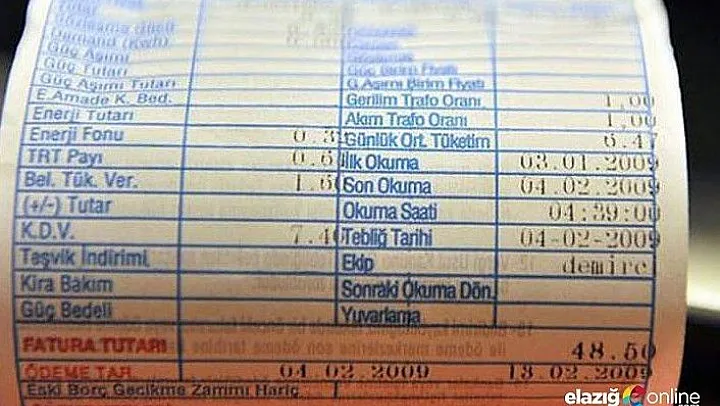 Tutar
Sözleşme Gücü
Demand (Kwh)
Güç Aşımı
Güç Tutarı Güç Birim Fiyatı
Güç Aşımı Tutarı G.Aşımı Birim Fiyatı
E.Amade K. Bed. Gerilim Trafo Oranı 1,00
Enerji Tutarı Akım Trafo Oranı 1,00
Enerji Fonu 0.3 Günlük Ort. Tüketim 6.47
TRT Payı 0.6 İlk Okuma 03.01.2009
Bel. Tük. Ver. 1.6 Son Okuma 04.02.2009
(+/-) Tutar Okuma Saati 04:39:00
K.D.V. 7.4 Tebliğ Tarihi 04-02-2009
Teşvik İndirimi Ekip demirel
Kira Bakım Sonraki Okuma Dön.
Güç Bedeli Yuvarlama
FATURA TUTARI 48.50
ÖDEME TAR. 04.02.2009 18.02.2009
Eski Borç Gecikme Zammı Hariç
elazığ online